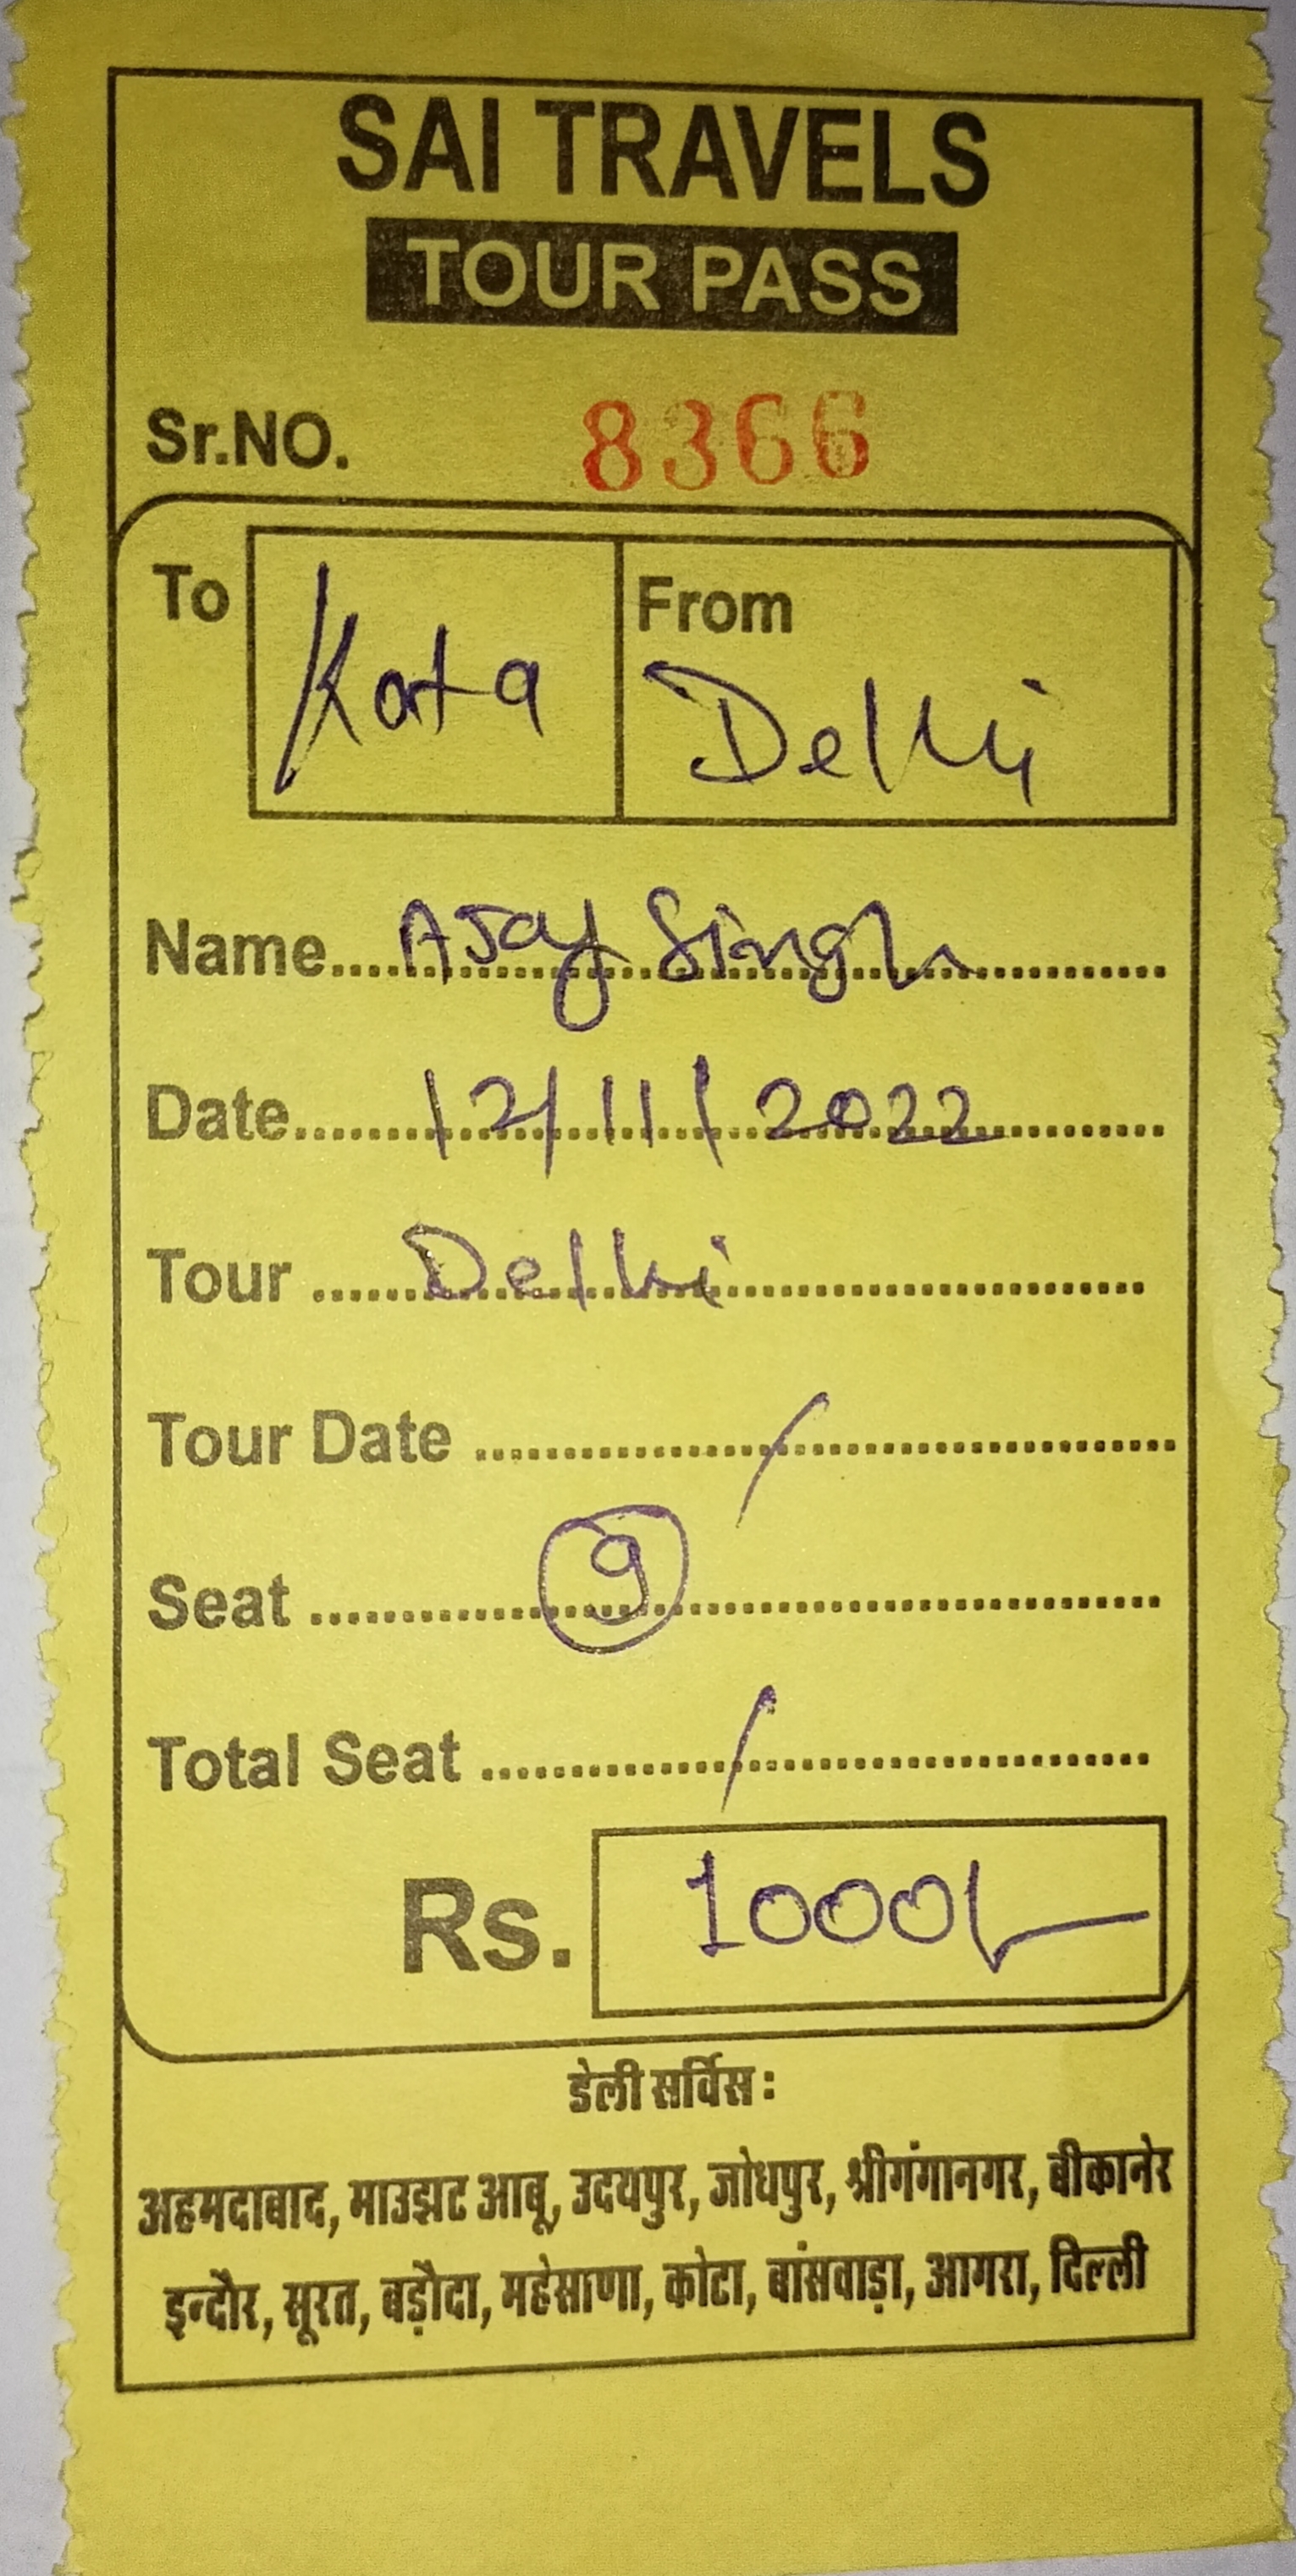 SAI TRAVELS
TOUR PASS
Sr.NO. 8366
To Kota From Delhi
Name.... Ajay Singh
Date.... 12/11/2022
Tour .... Delhi
Tour Date .... /
Seat .... 9
Total Seat .... /
Rs. 1000/-
डेली सर्विस :
अहमदाबाद, माउझट आबू, उदयपुर, जोधपुर, श्रीगंगानगर, बीकानेर
इन्दौर, सूरत, बड़ौदा, महेसाणा, कोटा, बांसवाड़ा, आगरा, दिल्ली